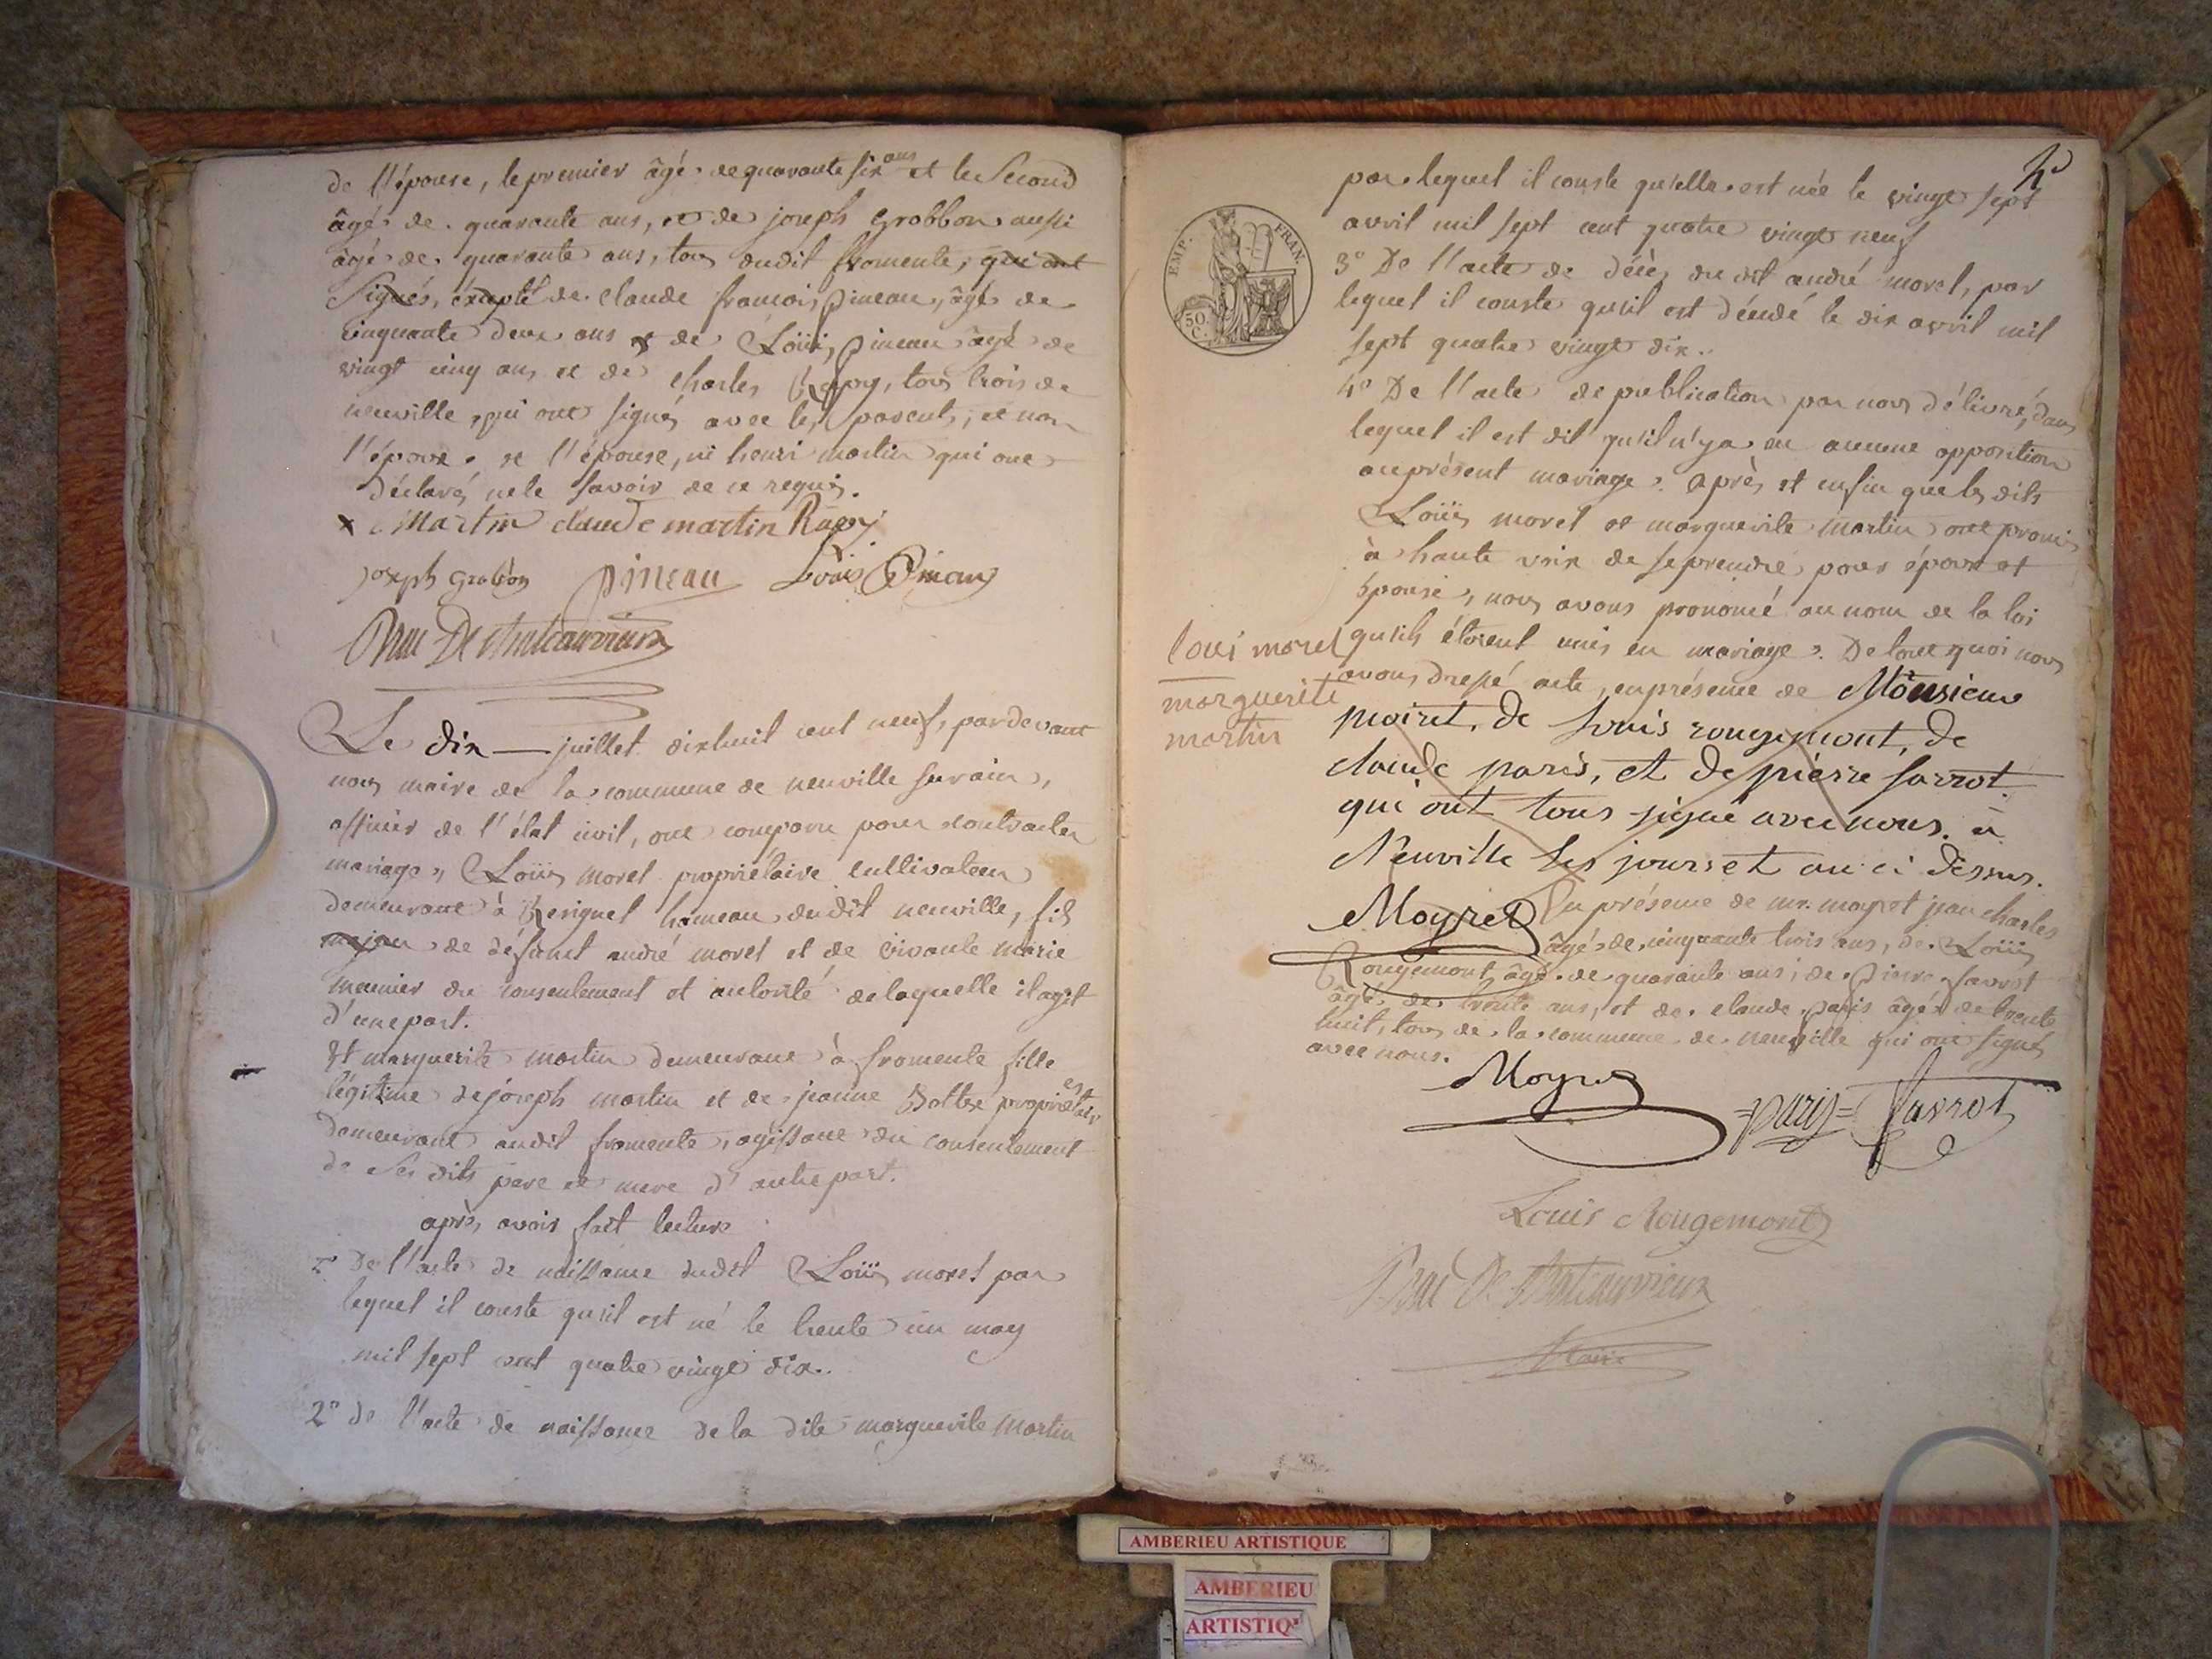 de l'épouse, le premier âgé de quarante six ans et le second
âgé de quarante ans, et de joseph Grobbon aussi
âgé de quarante ans, tous dudit fromente, qui ont
signés, excepté de Claude françois pineau, âgé de
cinquante deux ans et de Loüis pineau âgé de
vingt cinq ans et de charles Rapy, tous trois de
neuville, qui ont signés avec les parents, et non
l'époux et l'épouse, ni henri martin qui ont
déclarés ne le savoir de ce requis.
x Martin claude martin Rapy
joseph Grobon pineau Louis Pineau
Brac De Chateauvieux
Le dix — juillet dixhuit cent neuf, pardevant
nous maire de la commune de neuville sur ain,
officier de l'état civil, ont comparu pour contracter
mariage, Loüis morel propriétaire cultivateur
demeurant à Resignel hameau dudit neuville, fils
majeur de défunt andré morel et de vivante marie
meunier du consentement et autorité de laquelle il agit
d'une part.
Et marguerite martin demeurant à fromente fille
légitime de joseph martin et de jeanne Bottex propriétaires
demeurant audit fromente, agissant du consentement
de ses dits pere et mere d'autre part.
après avoir fait lecture
1° De l'acte de naissance dudit Loüis morel par
lequel il conste qu'il est né le trente un may
mil sept cent quatre vingt dix..
2° de l'acte de naissance de la dite marguerite Martin
EMP. FRAN.
50 C.
par lequel il conste qu'elle est née le vingt sept
avril mil sept cent quatre vingt neuf
3° De l'acte de décès du dit andré morel, par
lequel il conste qu'il est décédé le dix avril mil
sept quatre vingt dix..
4° De l'acte de publication par nous délivré, dans
lequel il est dit qu'il n'y a eu aucune opposition
au présent mariage. après et enfin que les dits
Loüis morel et marguerite martin ont promis
à haute voix de se prendre pour époux et
épouse, nous avons prononcé au nom de la loi
qu'ils étoient unis en mariage. De tout quoi nous
avons dressé acte, en présence de Monsieur
loui morel
marguerite
martin
moiret, de Louis rougemont, de
claude paris, et de pierre savrot
qui ont tous signé avec nous. à
Neuville les jours et an ci dessus.
Moyret En présence de mr. moyret jean charles
âgé de cinquante trois ans, de Loüis
Rougemont, âgé de quarante ans; de Pierre favrot
âgé de trente ans, et de claude paris âgé de trente
huit, tous de la commune de neuville qui ont signés
avec nous.
Moyret
=paris= favrot
Louis Rougemont
Brac De Chateauvieux
Maire
AMBERIEU ARTISTIQUE
AMBERIEU
ARTISTIQ